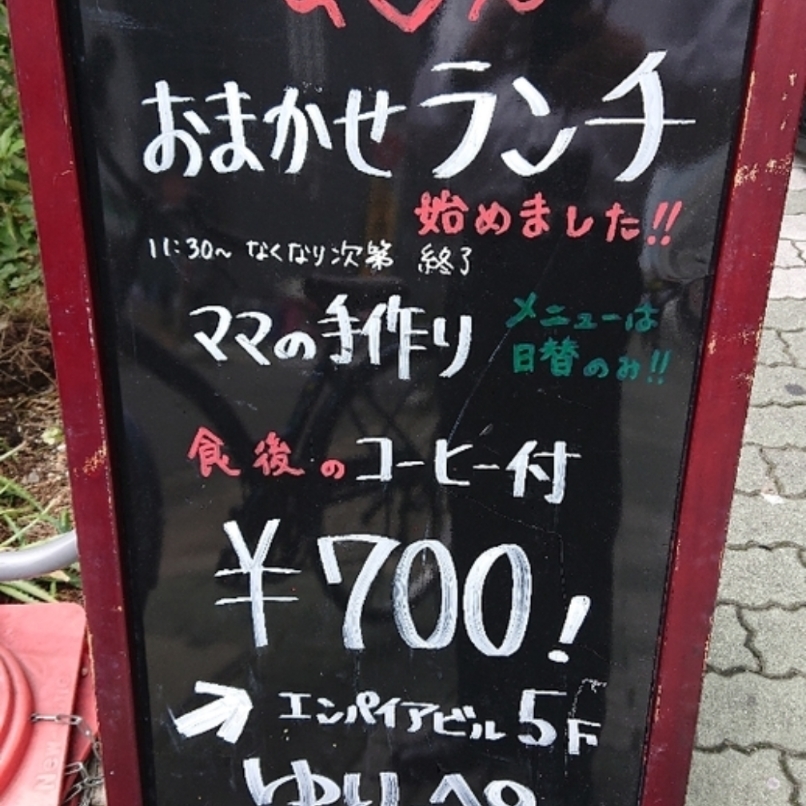 おまかせランチ
始めました!!
11:30～ なくなり次第 終了
ママの手作り
メニューは
日替のみ!!
食後のコーヒー付
¥700!
エンパイアビル 5F